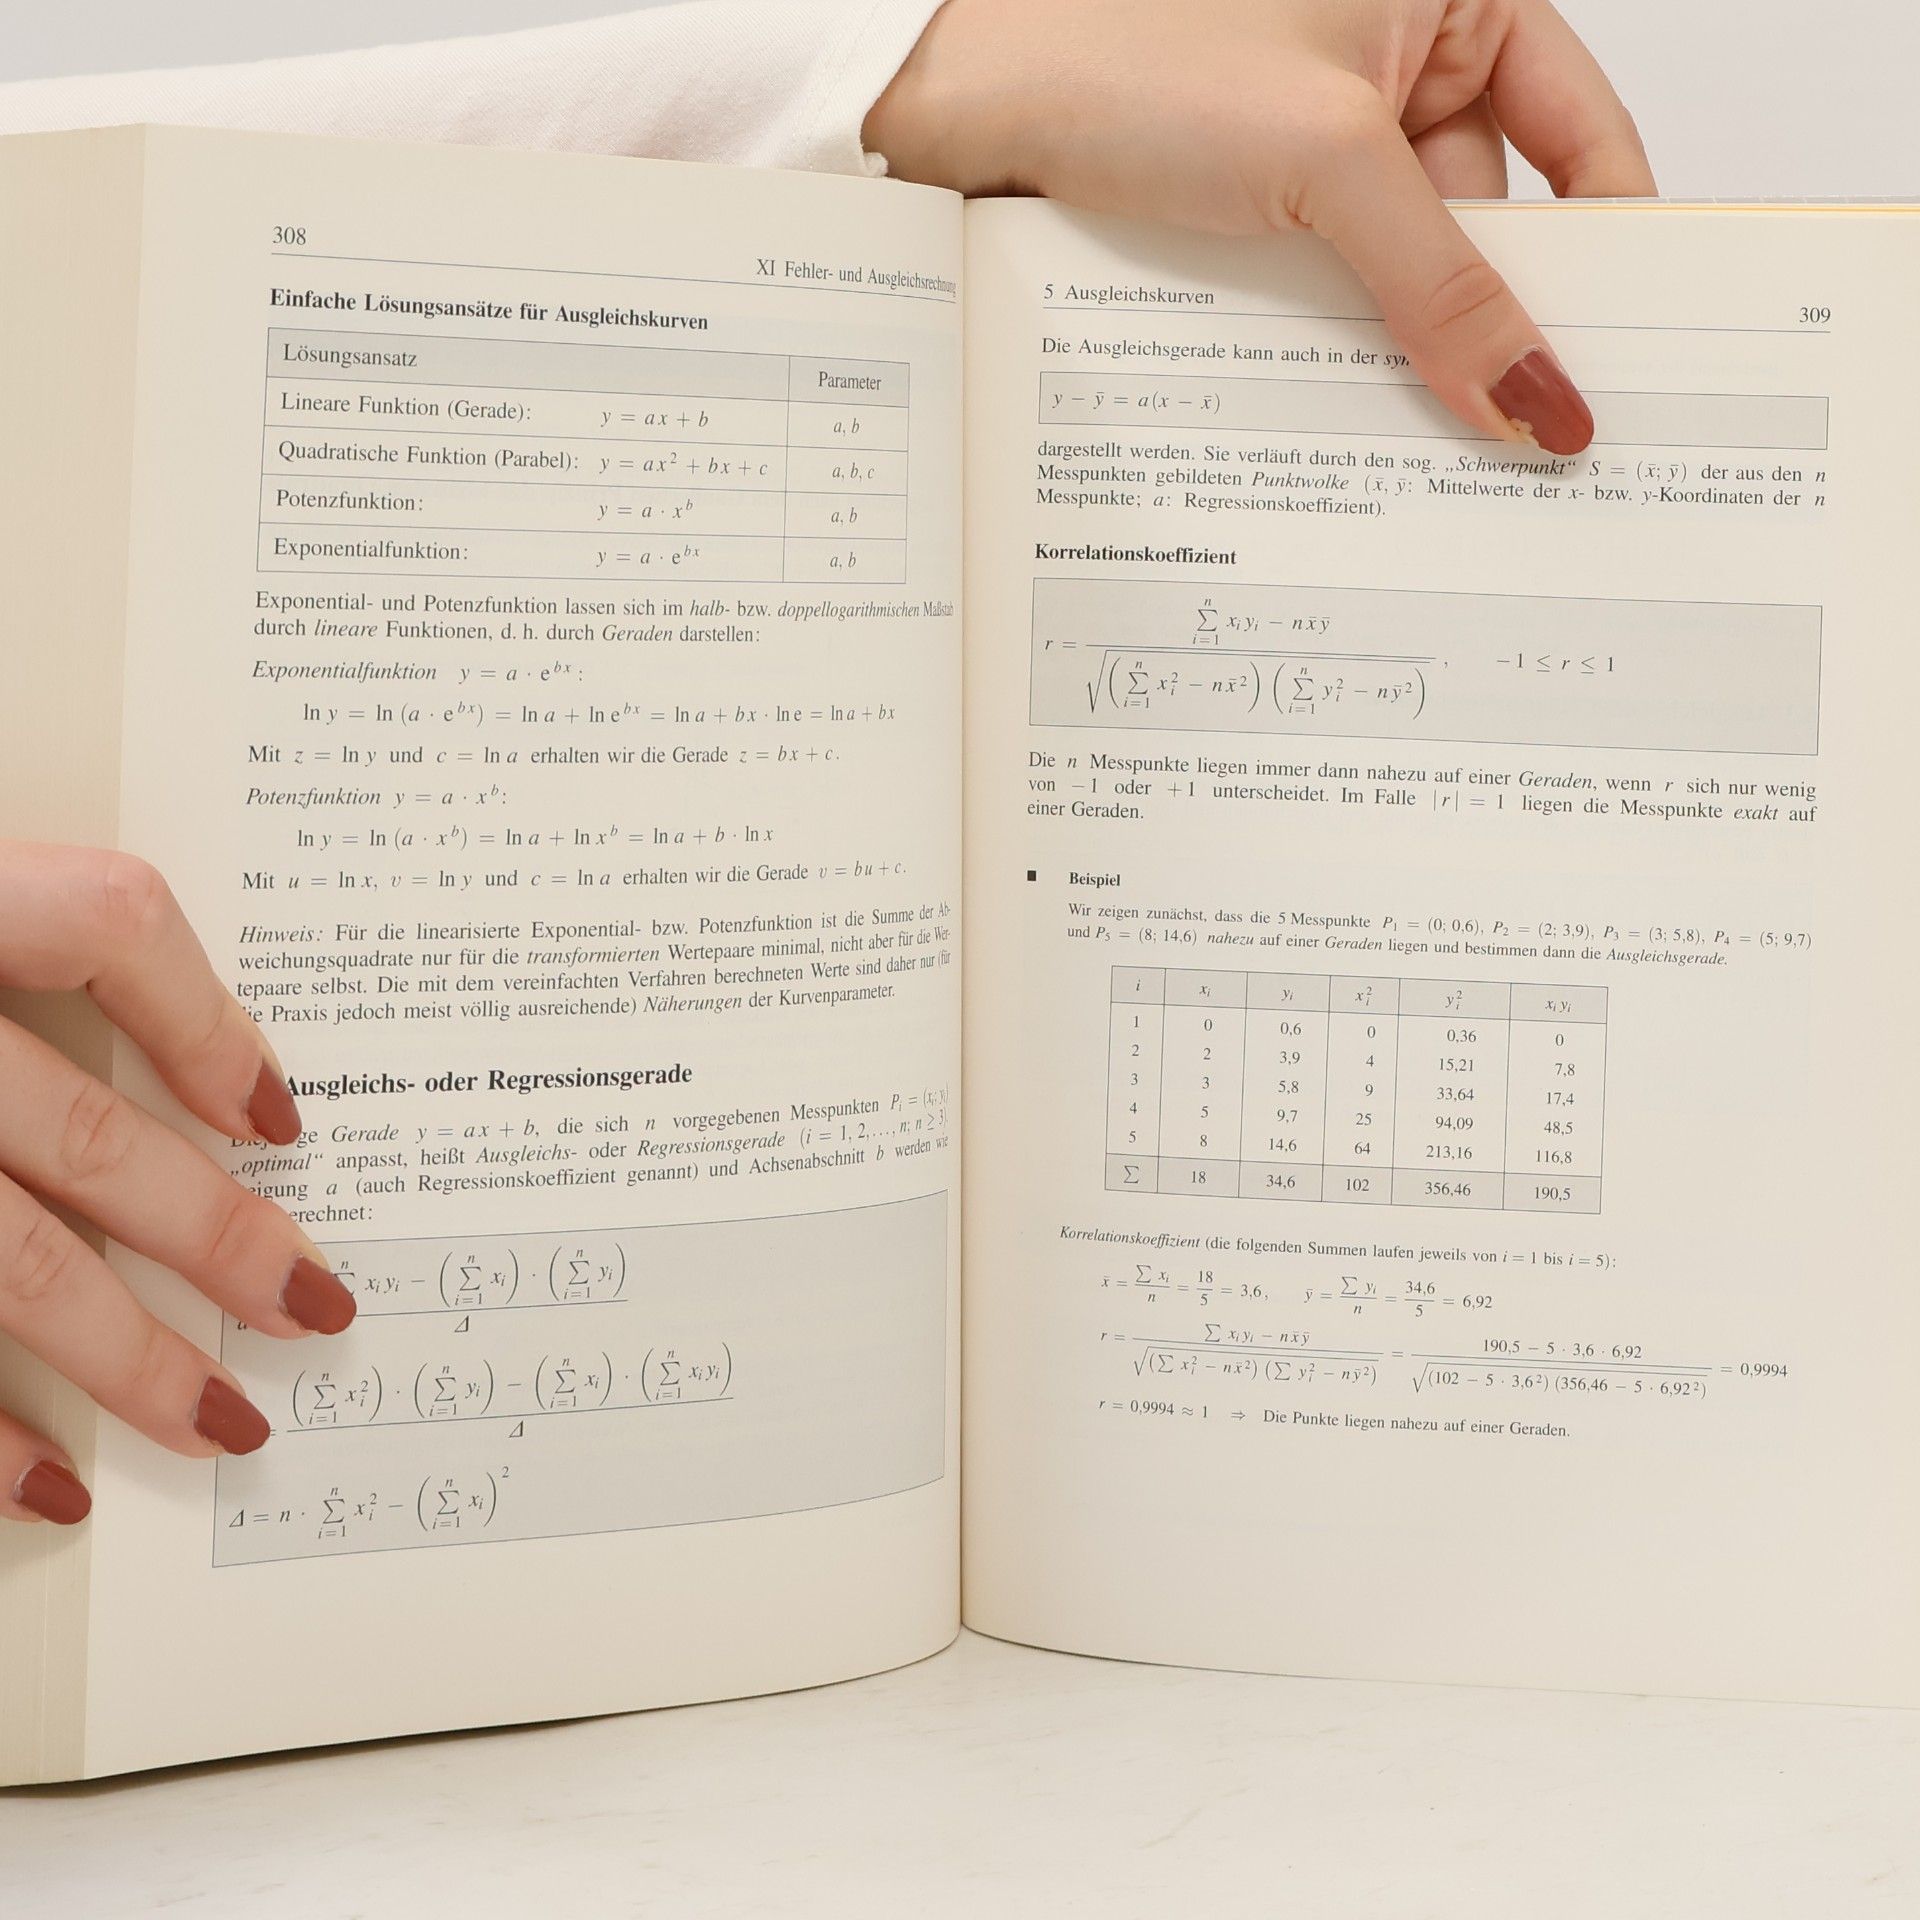 308
XI Fehler- und Ausgleichsrechnung
Einfache Lösungsansätze für Ausgleichskurven
Lösungsansatz Parameter
Lineare Funktion (Gerade): y = ax + b a, b
Quadratische Funktion (Parabel): y = ax² + bx + c a, b, c
Potenzfunktion: y = a · x^b a, b
Exponentialfunktion: y = a · e^{bx} a, b
Exponential- und Potenzfunktion lassen sich im halb- bzw. doppellogarithmischen Maßstab
durch lineare Funktionen, d. h. durch Geraden darstellen:
Exponentialfunktion y = a · e^{bx}:
ln y = ln (a · e^{bx}) = ln a + ln e^{bx} = ln a + bx · ln e = ln a + bx
Mit z = ln y und c = ln a erhalten wir die Gerade z = bx + c.
Potenzfunktion y = a · x^b:
ln y = ln (a · x^b) = ln a + ln x^b = ln a + b · ln x
Mit u = ln x, v = ln y und c = ln a erhalten wir die Gerade v = bu + c.
Hinweis: Für die linearisierte Exponential- bzw. Potenzfunktion ist die Summe der Ab-
weichungsquadrate nur für die transformierten Wertepaare minimal, nicht aber für die Wer-
tepaare selbst. Die mit dem vereinfachten Verfahren berechneten Werte sind daher nur (für
Praxis jedoch meist völlig ausreichende) Näherungen der Kurvenparameter.
Ausgleichs- oder Regressionsgerade
Gerade y = ax + b, die sich n vorgegebenen Messpunkten P_i = (x_i; y_i)
„optimal“ anpasst, heißt Ausgleichs- oder Regressionsgerade (i = 1, 2, ..., n; n ≥ 3).
eigung a (auch Regressionskoeffizient genannt) und Achsenabschnitt b werden wie
erechnet:
∑_{i=1}^{n} x_i y_i − (∑_{i=1}^{n} x_i) · (∑_{i=1}^{n} y_i)
Δ
= (∑_{i=1}^{n} x_i²) · (∑_{i=1}^{n} y_i) − (∑_{i=1}^{n} x_i) · (∑_{i=1}^{n} x_i y_i)
Δ
Δ = n · ∑_{i=1}^{n} x_i² − (∑_{i=1}^{n} x_i)²
5 Ausgleichskurven
309
Die Ausgleichsgerade kann auch in der
y − ȳ = a(x − x̄)
dargestellt werden. Sie verläuft durch den sog. „Schwerpunkt“ S = (x̄; ȳ) der aus den n
Messpunkten gebildeten Punktwolke (x̄, ȳ: Mittelwerte der x- bzw. y-Koordinaten der n
Messpunkte; a: Regressionskoeffizient).
Korrelationskoeffizient
r = (∑_{i=1}^{n} x_i y_i − n x̄ ȳ) / √((∑_{i=1}^{n} x_i² − n x̄²) (∑_{i=1}^{n} y_i² − n ȳ²)), −1 ≤ r ≤ 1
Die n Messpunkte liegen immer dann nahezu auf einer Geraden, wenn r sich nur wenig
von −1 oder +1 unterscheidet. Im Falle |r| = 1 liegen die Messpunkte exakt auf
einer Geraden.
■ Beispiel
Wir zeigen zunächst, dass die 5 Messpunkte P₁ = (0; 0,6), P₂ = (2; 3,9), P₃ = (3; 5,8), P₄ = (5; 9,7)
und P₅ = (8; 14,6) nahezu auf einer Geraden liegen und bestimmen dann die Ausgleichsgerade.
i x_i y_i x_i² y_i² x_i y_i
1 0 0,6 0 0,36 0
2 2 3,9 4 15,21 7,8
3 3 5,8 9 33,64 17,4
4 5 9,7 25 94,09 48,5
5 8 14,6 64 213,16 116,8
∑ 18 34,6 102 356,46 190,5
Korrelationskoeffizient (die folgenden Summen laufen jeweils von i = 1 bis i = 5):
x̄ = ∑ x_i / n = 18/5 = 3,6, ȳ = ∑ y_i / n = 34,6/5 = 6,92
r = (∑ x_i y_i − n x̄ ȳ) / √((∑ x_i² − n x̄²) (∑ y_i² − n ȳ²)) = (190,5 − 5 · 3,6 · 6,92) / √((102 − 5 · 3,6²) (356,46 − 5 · 6,92²)) = 0,9994
r = 0,9994 ≈ 1 ⇒ Die Punkte liegen nahezu auf einer Geraden.